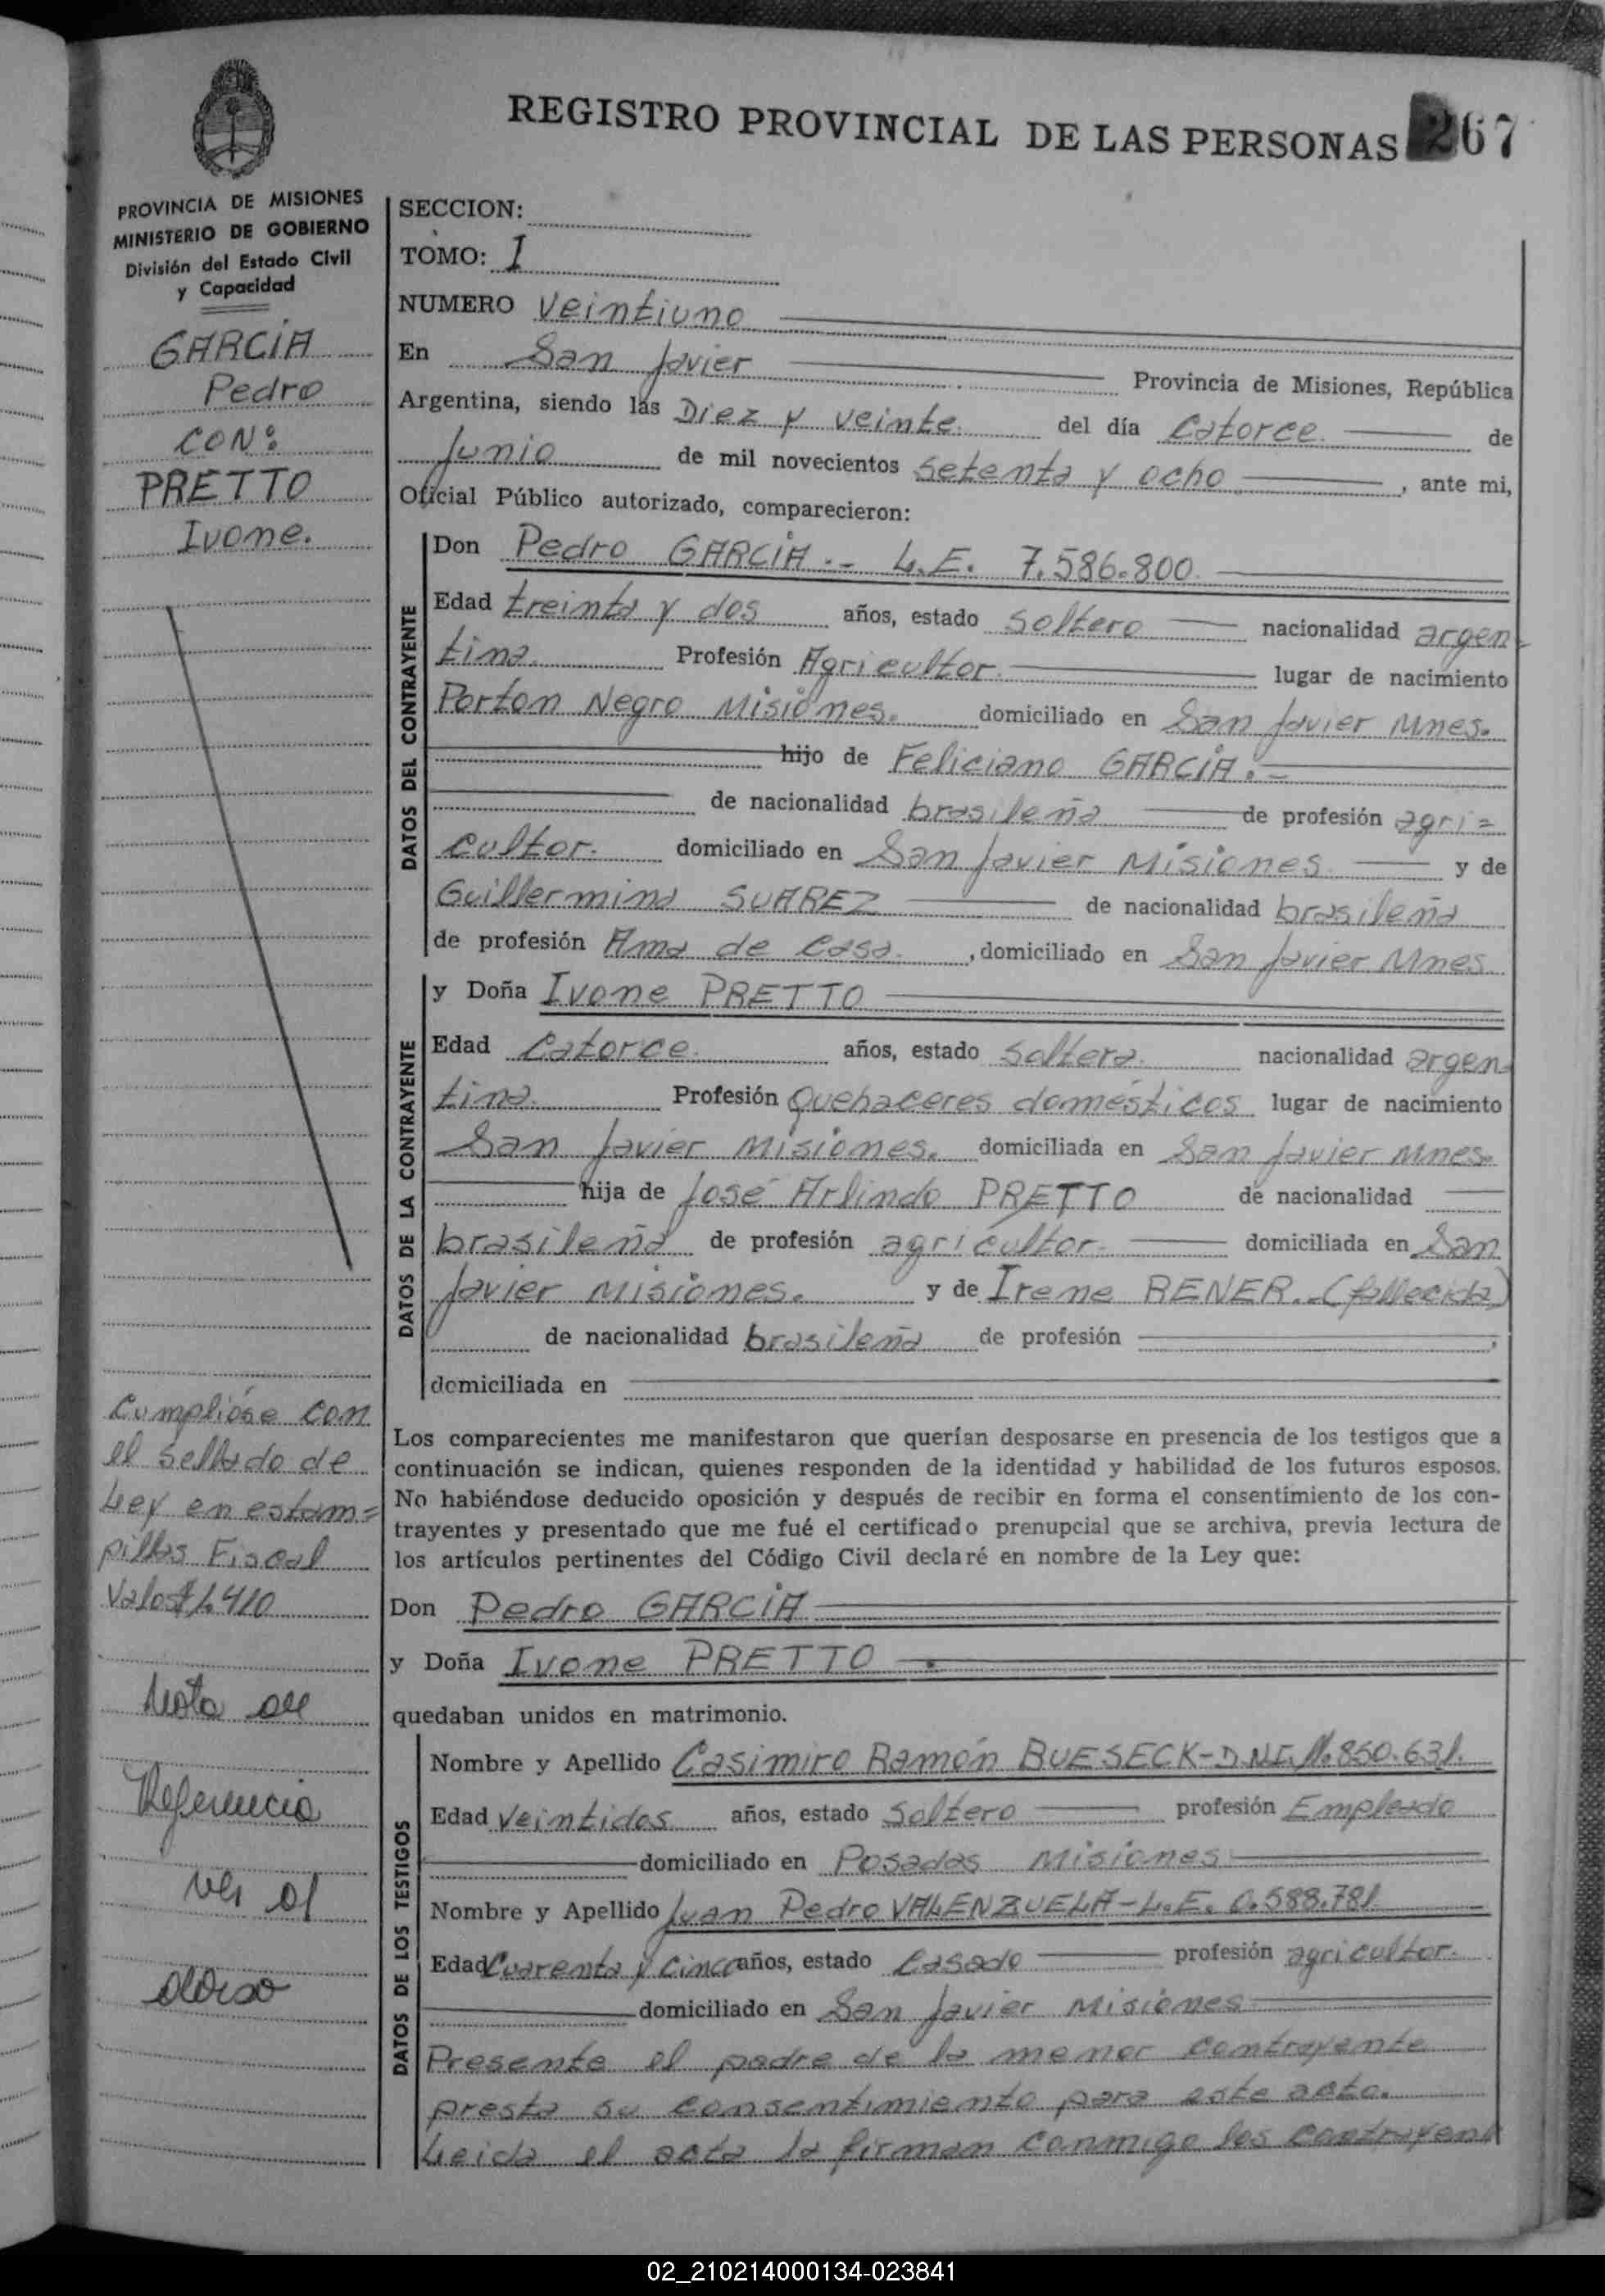 REGISTRO PROVINCIAL DE LAS PERSONAS 267
PROVINCIA DE MISIONES
MINISTERIO DE GOBIERNO
División del Estado Civil
y Capacidad
GARCIA
Pedro
CON:
PRETTO
Ivone.
SECCION:
TOMO: I
NUMERO Veintiuno
En San Javier Provincia de Misiones, República
Argentina, siendo las Diez y veinte del día Catorce de
Junio de mil novecientos setenta y ocho , ante mi,
Oficial Público autorizado, comparecieron:
DATOS DEL CONTRAYENTE
Don Pedro GARCIA.- L.E. 7.586.800
Edad treinta y dos años, estado soltero nacionalidad argen
tina. Profesión Agricultor. lugar de nacimiento
Porton Negro Misiones. domiciliado en San Javier Mnes.
hijo de Feliciano GARCIA.-
de nacionalidad brasileña de profesión agri=
cultor. domiciliado en San Javier Misiones y de
Guillermina SUAREZ de nacionalidad brasileña
de profesión Ama de Casa. , domiciliado en San Javier Mnes
DATOS DE LA CONTRAYENTE
y Doña Ivone PRETTO
Edad Catorce. años, estado soltera. nacionalidad argen
tina. Profesión Quehaceres domésticos lugar de nacimiento
San Javier Misiones. domiciliada en San Javier Mnes.
hija de José Arlindo PRETTO de nacionalidad
brasileña de profesión agricultor. domiciliada en San
Javier Misiones. y de Irene RENER.-(fallecida)
de nacionalidad brasileña de profesión ,
domiciliada en
Cumplióse con
el sellado de
Ley en estam=
pillas Fiscal
Valos $ 1.410
Nota de
Referencia
ver al
dorso
Los comparecientes me manifestaron que querían desposarse en presencia de los testigos que a
continuación se indican, quienes responden de la identidad y habilidad de los futuros esposos.
No habiéndose deducido oposición y después de recibir en forma el consentimiento de los con-
trayentes y presentado que me fué el certificado prenupcial que se archiva, previa lectura de
los artículos pertinentes del Código Civil declaré en nombre de la Ley que:
Don Pedro GARCIA
y Doña Ivone PRETTO
quedaban unidos en matrimonio.
DATOS DE LOS TESTIGOS
Nombre y Apellido Casimiro Ramón BUESECK-D.N.I. 11.850.631.
Edad Veintidos años, estado Soltero profesión Empleado
domiciliado en Posadas Misiones
Nombre y Apellido Juan Pedro VALENZUELA-L.E. 0.588.781
Edad Cuarenta y Cinco años, estado Casado profesión agricultor.
domiciliado en San Javier Misiones
Presente el padre de la menor contrayente
presta su consentimiento para este acto.
Leida el acta la firman conmigo los contrayent
02_210214000134-023841